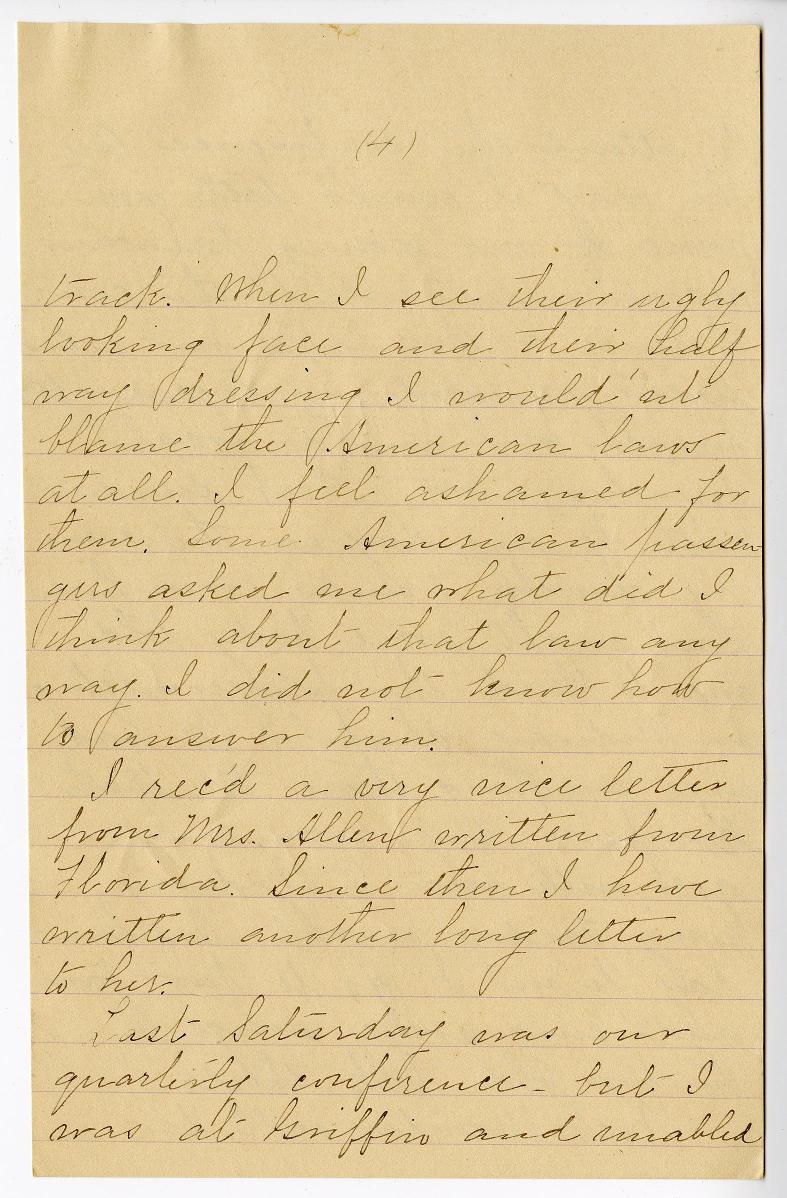 (4)
track. When I see their ugly
looking face and their half
way dressing I would'nt
blame the American laws
at all. I feel ashamed for
them. Some American passen-
gers asked me what did I
think about that law any
way. I did not know how
to answer him.
I rec'd a very nice letter
from Mrs. Allen written from
Florida. Since then I have
written another long letter
to her.
Last Saturday was our
quarterly conference - but I
was at Griffin and unabled